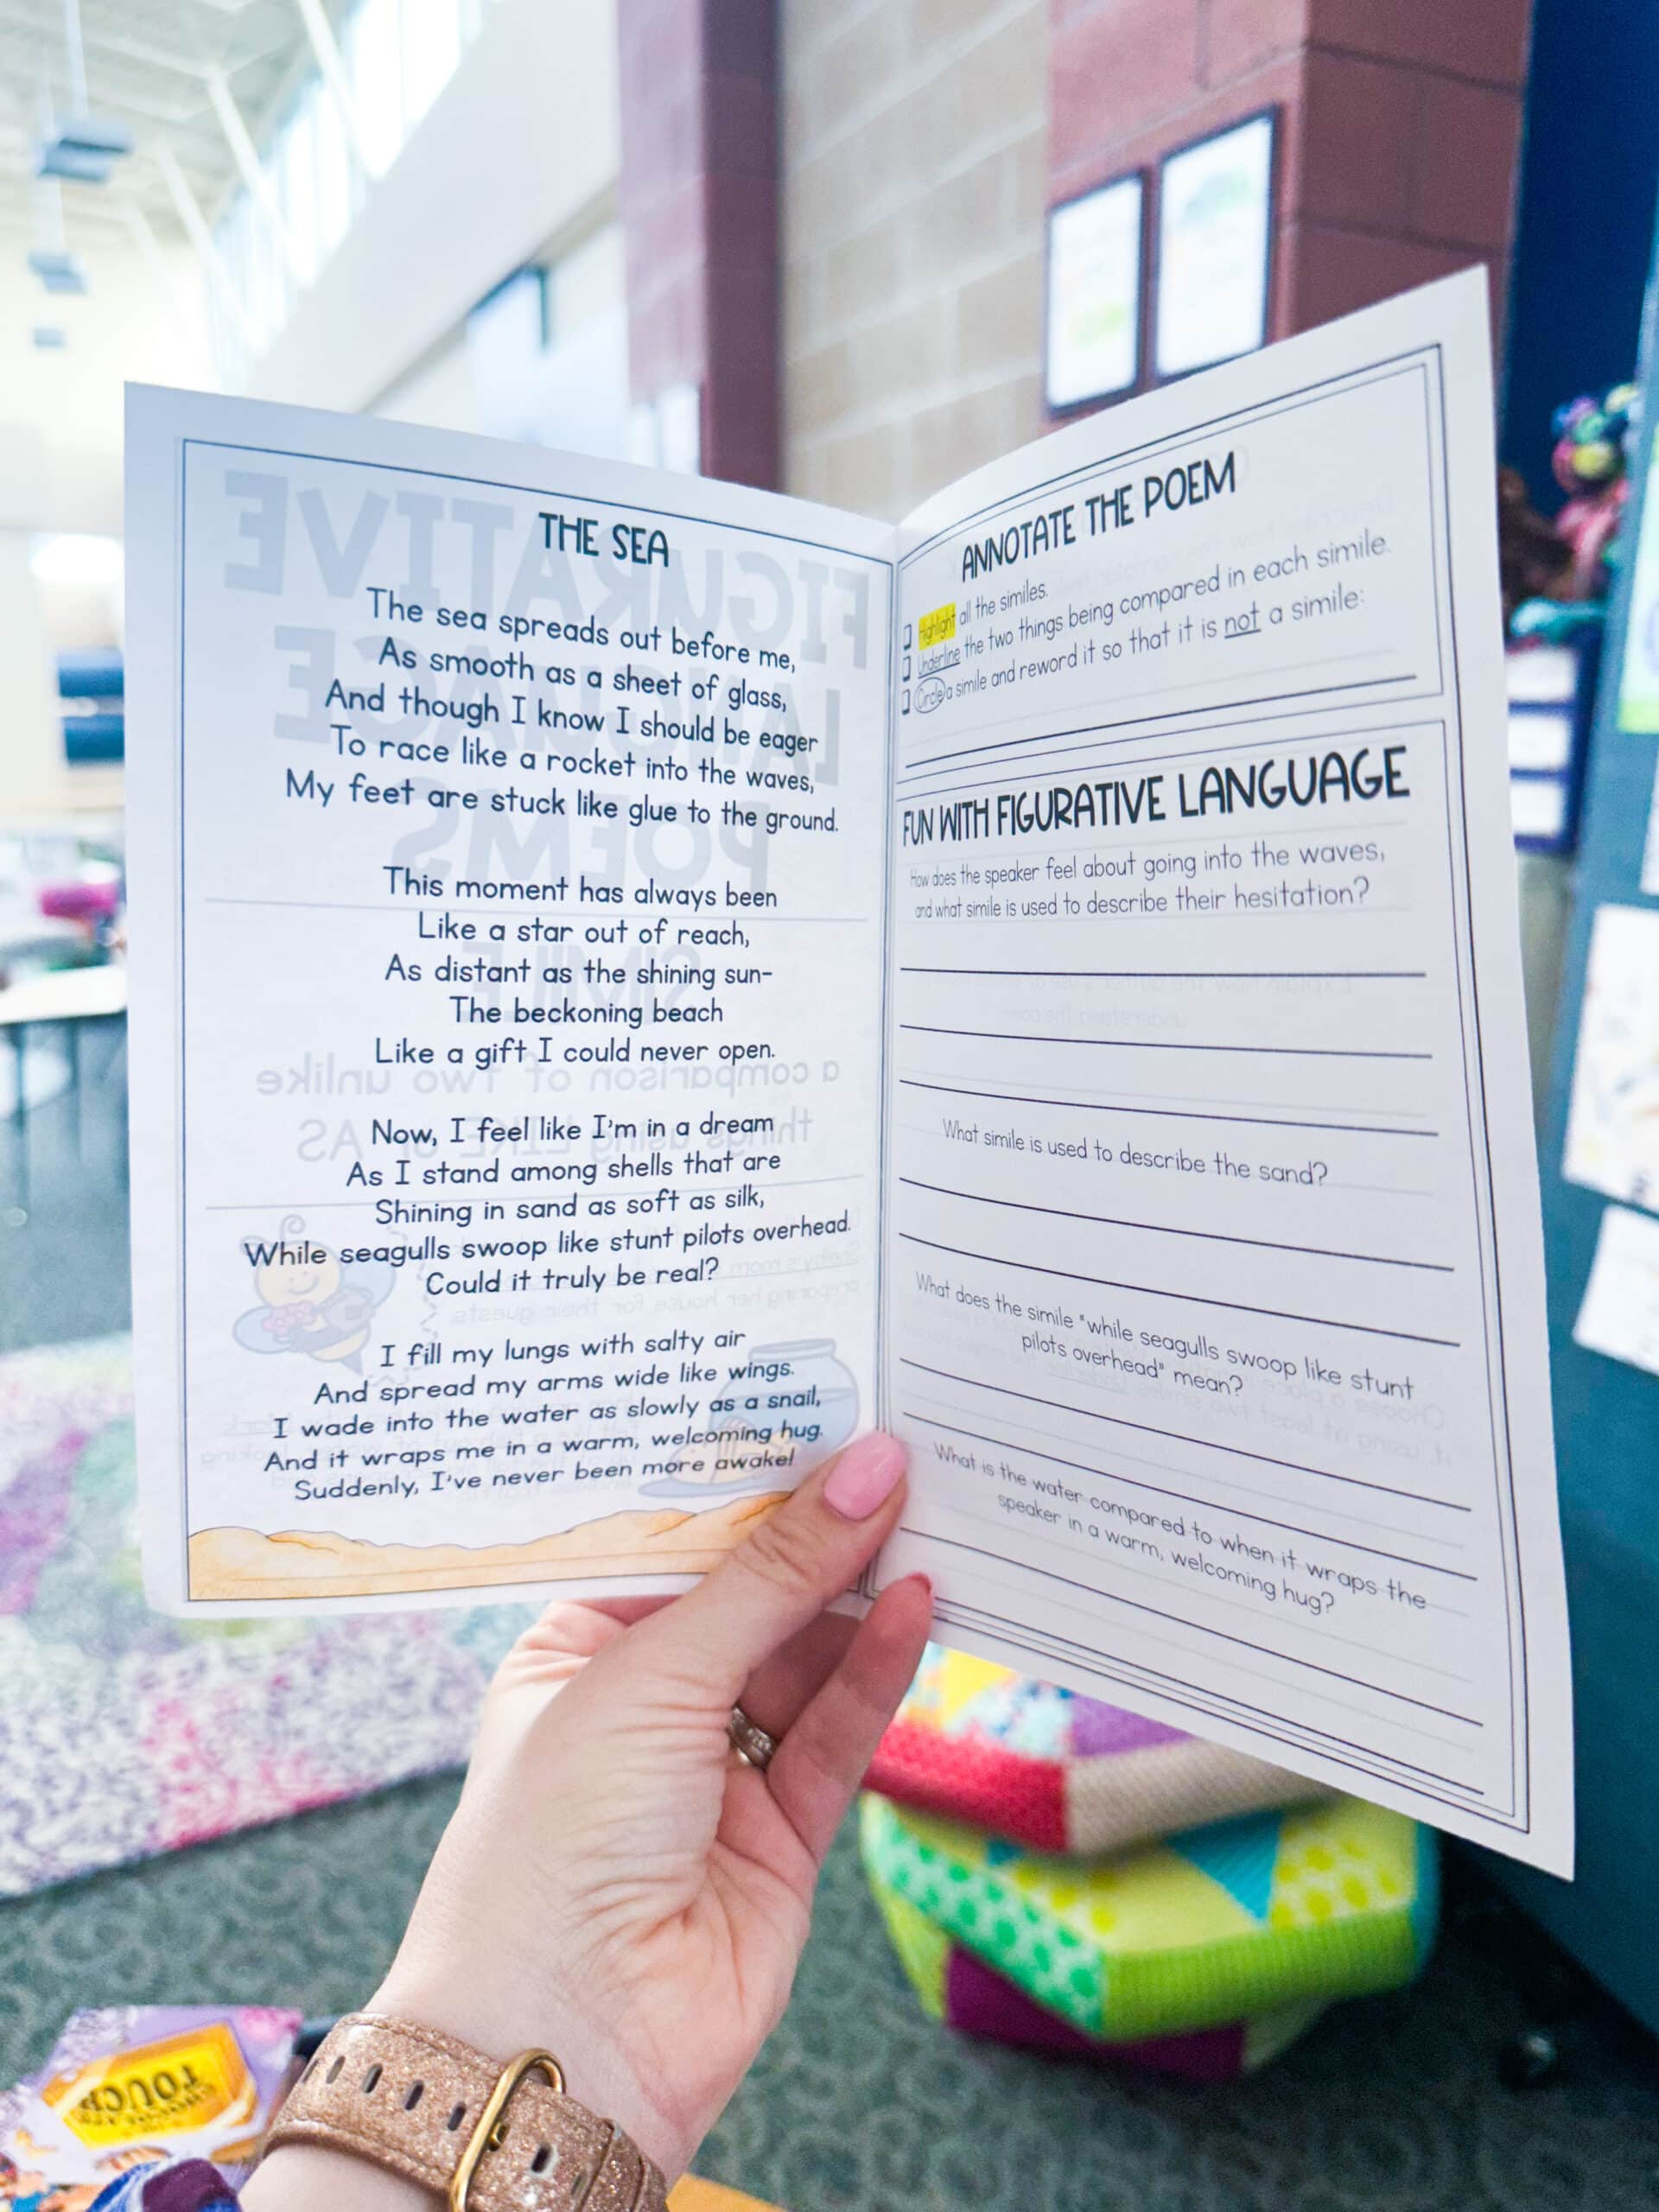 THE SEA
The sea spreads out before me,
As smooth as a sheet of glass,
And though I know I should be eager
To race like a rocket into the waves,
My feet are stuck like glue to the ground.
This moment has always been
Like a star out of reach,
As distant as the shining sun-
The beckoning beach
Like a gift I could never open.
Now, I feel like I'm in a dream
As I stand among shells that are
Shining in sand as soft as silk,
While seagulls swoop like stunt pilots overhead.
Could it truly be real?
I fill my lungs with salty air
And spread my arms wide like wings.
I wade into the water as slowly as a snail,
And it wraps me in a warm, welcoming hug.
Suddenly, I've never been more awake!
FIGURATIVE
LANGUAGE
POEMS
SIMILE
a comparison of two unlike
things using LIKE or AS
ANNOTATE THE POEM
Highlight all the similes.
Underline the two things being compared in each simile.
Circle a simile and reword it so that it is not a simile:
FUN WITH FIGURATIVE LANGUAGE
How does the speaker feel about going into the waves,
and what simile is used to describe their hesitation?
What simile is used to describe the sand?
What does the simile "while seagulls swoop like stunt
pilots overhead" mean?
What is the water compared to when it wraps the
speaker in a warm, welcoming hug?
TOUCH